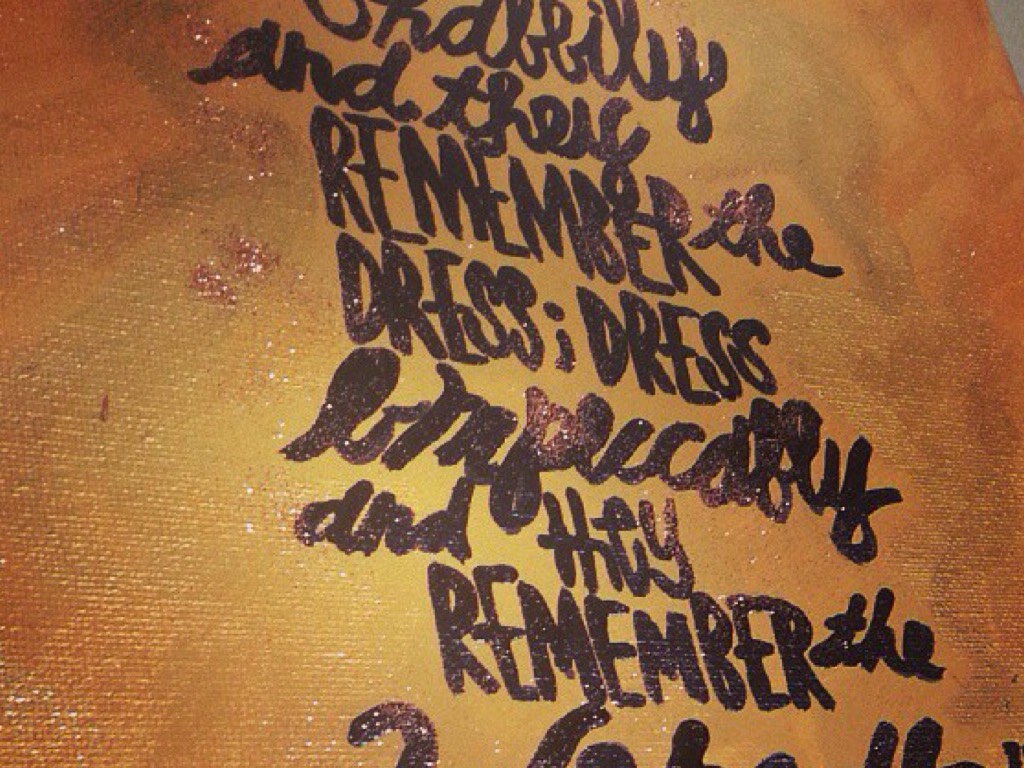 Shabbily
and they
REMEMBER the
DRESS; DRESS
impeccably
and they
REMEMBER the